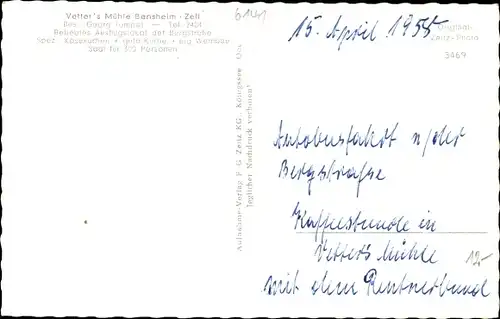 Vetter's Mühle Bensheim - Zell
Bes. Georg
Tel. 2424
Beliebtes Ausflugslokal der Bergstraße
Spez. Käsekuchen • gute Küche • eig. Weinbau
Saal für 300 Personen
6141
15. April 1955
Original-
Zeitz-Photo
3469
Aufnahme-Verlag F. G. Zeitz KG., Königssee Obb.
Jeglicher Nachdruck verboten!
Autobusfahrt n/der
Bergstraße
Kaffeestunde in
Vetter's Mühle
mit dem Rentnerbund
12-